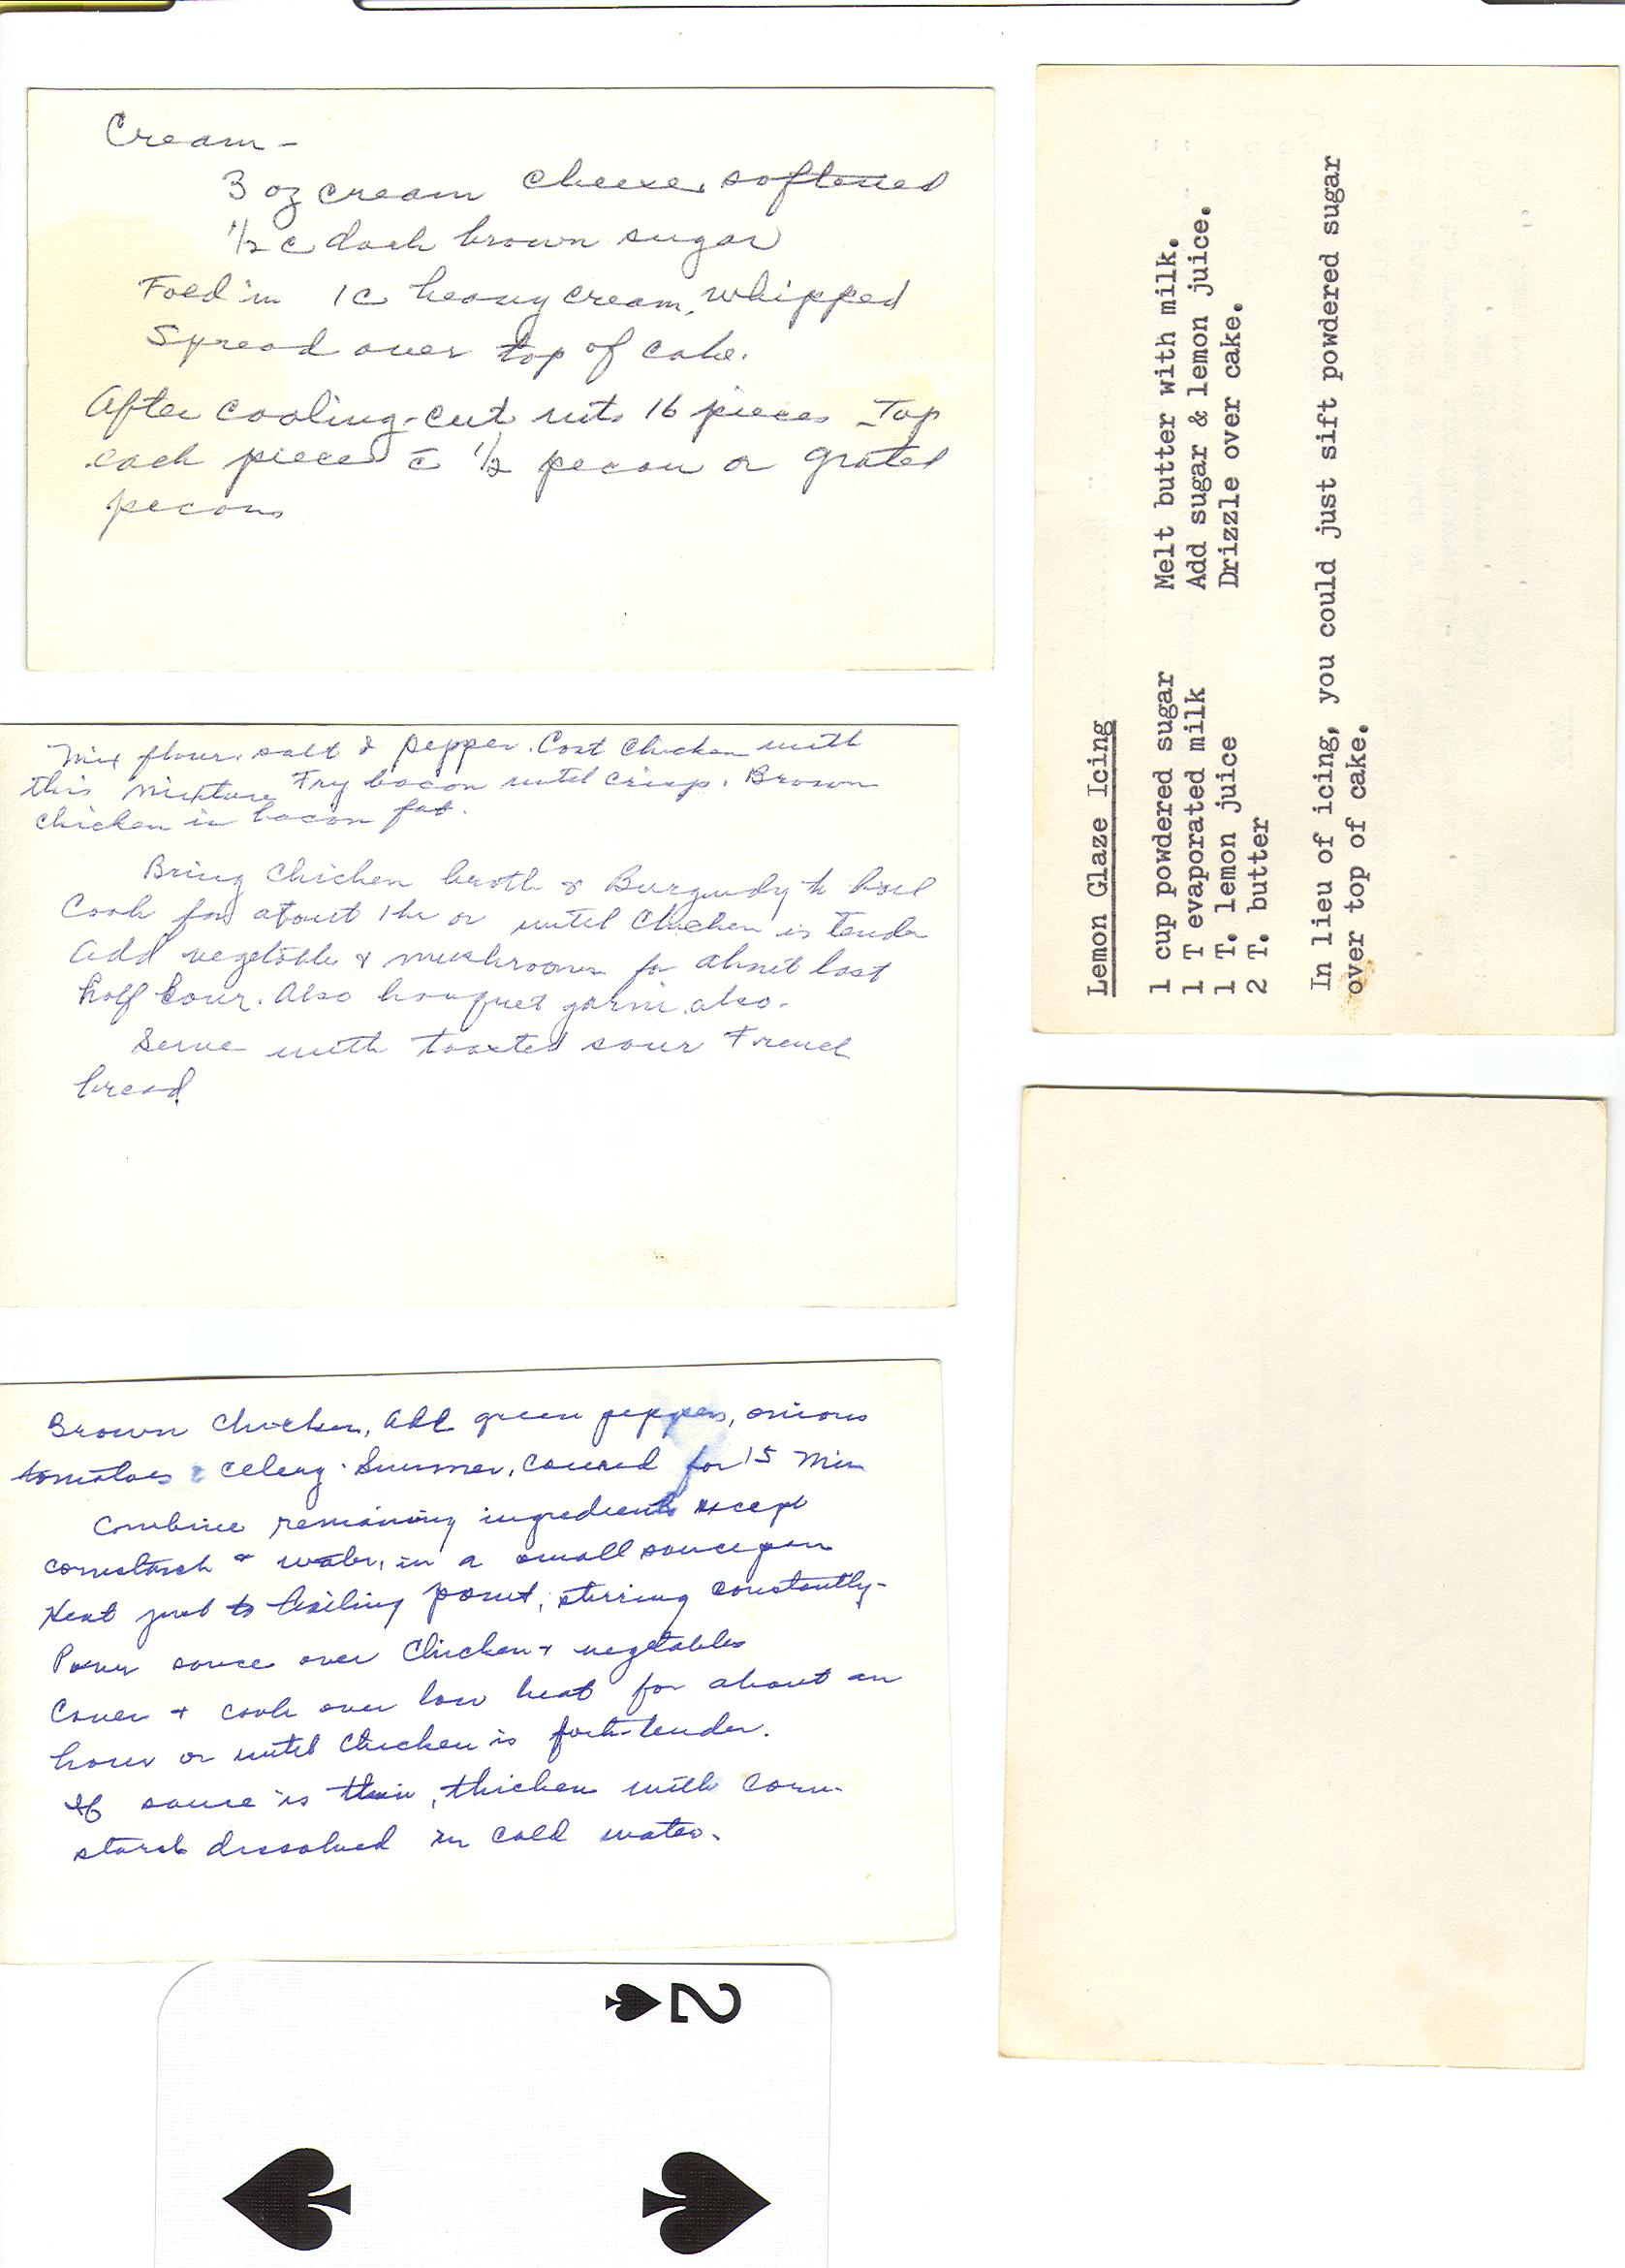 Cream -
3 oz cream cheese, softened
1/2 c dark brown sugar
Fold in 1 c heavy cream, whipped
Spread over top of cake.
After cooling-cut into 16 pieces Top
each piece c̄ 1/2 pecan or grated
pecans
Mix flour, salt & pepper. Coat Chicken with
this mixture Fry bacon until crisp. Brown
chicken in bacon fat.
Bring Chicken broth & Burgundy to boil
Cook for about 1 hr or until Chicken is tender
Add vegetables & mushrooms for about last
half hour. Also bouquet garni also.
Serve with toasted sour French
bread.
Brown Chicken, Add green peppers, onions
tomatoes & celery. Simmer, covered for 15 Min
Combine remaining ingredients except
cornstarch & water, in a small saucepan
Heat just to boiling point, stirring constantly-
Pour sauce over Chicken + vegetables
Cover + cook over low heat for about an
hour or until Chicken is fork-tender.
If sauce is thin, thicken with corn-
starch dissolved in cold water.
2
Lemon Glaze Icing
1 cup powdered sugar Melt butter with milk.
1 T evaporated milk Add sugar & lemon juice.
1 T. lemon juice Drizzle over cake.
2 T. butter
In lieu of icing, you could just sift powdered sugar
over top of cake.